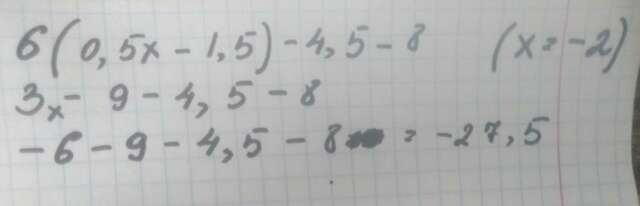 6(0,5x - 1,5) - 4,5 - 8 (x = -2)
3x - 9 - 4,5 - 8
-6 - 9 - 4,5 - 8 = -27,5